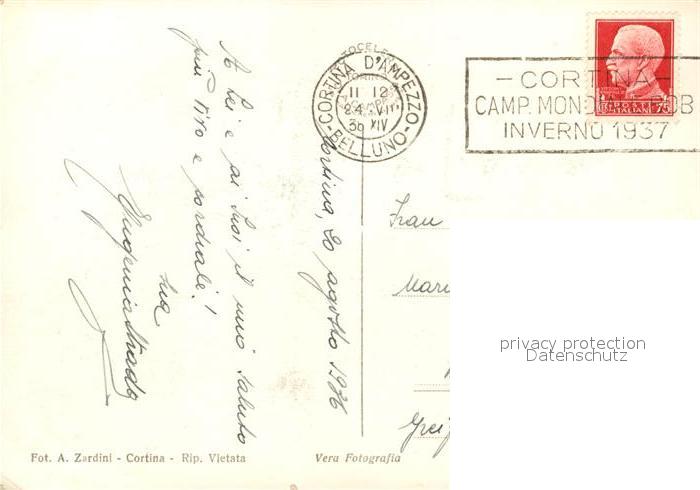 CORTINA D'AMPEZZO
11 12
24 VII
36 XIV
- BELLUNO -
- CORTINA -
CAMP. MOND
INVERNO 1937
POSTE
ITALIANE
75
Cortina, 20 agosto 1936
A Lei e ai Suoi il mio saluto
più vivo e cordiale!
sua
Eugenia
Frau
Mari
Fot. A. Zardini - Cortina - Rip. Vietata
Vera Fotografia
privacy protection
Datenschutz